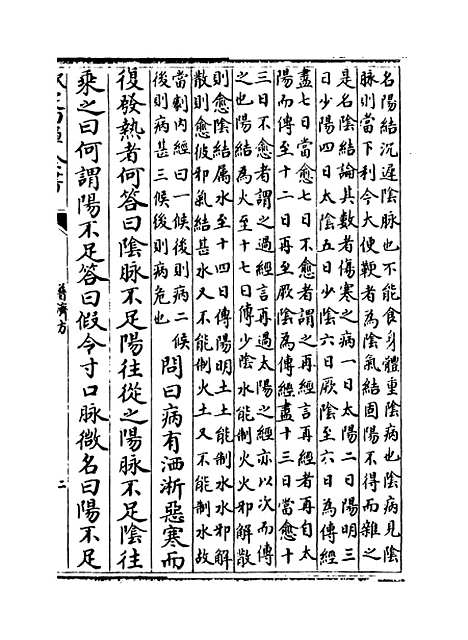 名陽結沉遲陰脉也不能食身體重陰病也陰病見陰
脉則當下利今大便鞕者為陰氣結固陽不得而雜之
是名陰結論其數者傷寒之病一日太陽二日陽明三
日少陽四日太陰五日少陰六日厥陰至六日為傳經
盡七日當愈七日不愈者謂之再經言再經者再自太
陽而傳至十二日再至厥陰為傳經盡十三日當愈十
三日不愈者謂之過經言再過太陽之經亦以次而傳
之也陽結為火至十七日傳少陰水能制火火邪解散
則愈陰結屬水至十四日傳陽明土土能制水水邪解
散則愈彼邪氣結甚水又不能制火土又不能制水故
當劇内經曰一候後則病二候
後則病甚三候後則病危也
問曰病有洒淅惡寒而
復發熱者何答曰陰脉不足陽往從之陽脉不足陰往
乘之曰何謂陽不足答曰假令寸口脉微名曰陽不足
普濟方
二